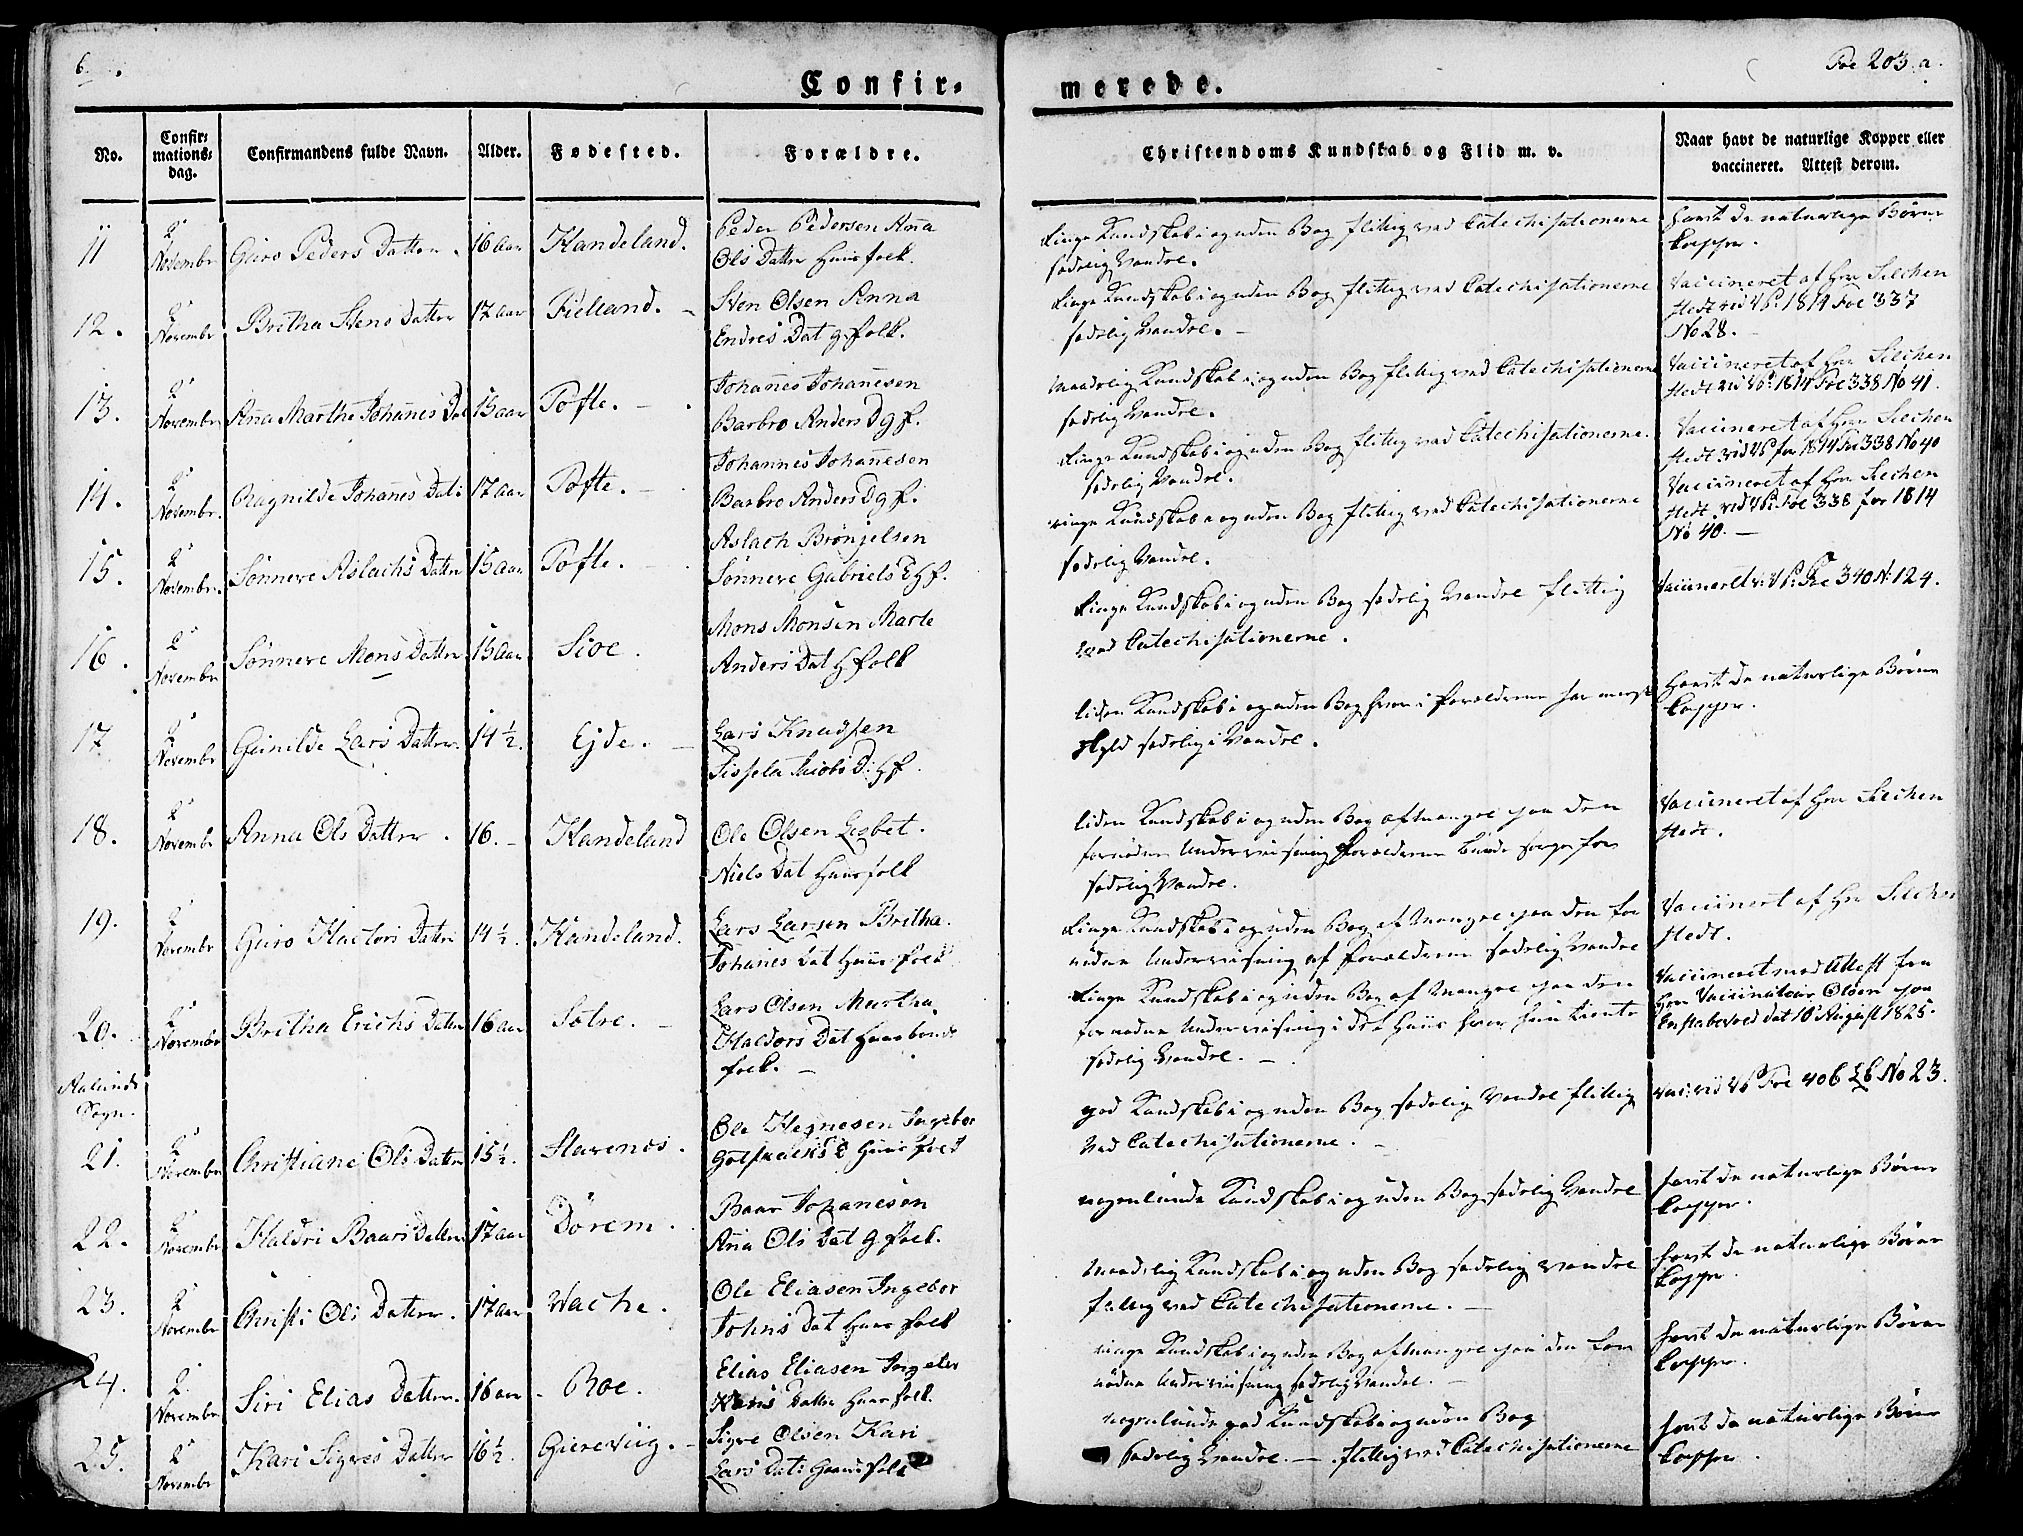 Foe 203 a.
Confir-
merede.
No.
Confir-
mations-
dag.
Confirmandens fulde Navn.
Alder.
Fødested.
Forældre.
Christendoms Kundskab og Flid m. v.
Naar havt de naturlige Kopper eller
vaccineret. Attest derom.
11
2
November
Guro Peders Datter.
16 Aar
Handeland.
Peder Pedersen Aña
Ols Datter Huusfolk.
Ringe Kundskab i og uden Bog flittig ved Catechisationerne
sædelig Vandel.
havt de naturlige Børne
Copper.
12.
2
November
Britha Stens Datter
17 aar
Fielland.
Sten Olsen Anna
Endres Dat g. folk.
Ringe Kundskab i og uden Bog flittig ved Catechisationerne
sædelig Vandel.
Vaccineret af Hr Sechen
stedt 1814 Foe 337
No 28.
13.
2
November
Aña Marthe Johañes Dat
15 aar
Tofte.
Johañes Johañesen
Barbro Anders D g f.
Maadelig Kundskab i og uden Bog flittig ved Catechisationerne
sædelig Vandel.
Vaccineret af Hr Sechen
stedt 1814 Foe 338 No 41.
14.
2
November.
Ragnilde Johañes Dat:
17 aar
Tofte.
Johannes Johañesen
Barbro Anders D g f.
Ringe Kundskab i og uden Bog flittig ved Catechisationerne.
sædelig Vandel.
Vaccineret af Hr Sechen
stedt for 1814 Foe 338 No 40
15.
2
November.
Sönneve Aslachs Datter
15 aar
Tofte.
Aslach Brönjelsen
Sönneve Gabriels D H f.
ringe Kundskab i og uden Bog flittig ved Catechisationerne
sædelig Vandel.
Vaccineret af Hr Sechen
stedt Foe 338 for 1814
No 40.
16.
2
November
Sönneve Mons Datter
15 aar
Sioe.
Mons Monsen Marte
Anders Dat H folk
Ringe Kundskab i og uden Bog sædelig Vandel flittig
ved Catechisationerne.
Vaccineret Foe 340 N: 124.
17
2
November
Gunilde Lars Datter.
14½.
Ejde.
Lars Knudsen
Sissela Jacobs D: H f.
liden Kundskab i og uden Bog hvori Forældrene har meest
Skyld sædelig i Vandel.
Havt de naturlige Børne
Copper.
18.
2
November
Anna Ols Datter.
16.
Handeland
Ole Olsen Lisbet.
Niels Dat Huusfolk
liden Kundskab i og uden Bog af Mangel paa den
fornødne Underviisning Forældrene burde sørge for
sædelig Vandel.
Vaccineret af Hr Sechen
stedt.
19.
2
November
Guro Hactors Datter
14½.
Handeland.
Lars Larsen Britha
Johañes Dat Huusfolk
Ringe Kundskab i og uden Bog af Mangel paa den for
nødne Underviisning af Forældrene sædelig Vandel
Vaccineret af Hr Sechen
stedt.
20.
2
November
Britha Erichs Datter
16 aar
Sotre.
Lars Olsen Martha
Haldors Dat Huusbonds
folk.
Ringe Kundskab i og uden Bog af Mangel paa den
fornødne Underviisning i det Huus hvor hun tiente
sædelig Vandel.
Vaccineret med Attest fra
Hr Vaccinateur Olsen paa
Enstabevold dat 10 August 1825.
Aalunds
Sogn.
21.
2
November
Christiane Ols Datter
15½.
Stavenes.
Ole Hegnesen Ingebor
Huusfolk
god Kundskab i og uden Bog sædelig Vandel flittig
ved Catechisationerne.
vac: Foe 406 No 23.
22.
2
November
Haldri Baars Datter
17 aar
Dörem.
Baar Johanesen
Aña Ols Dat g. folk.
nogenlunde Kundskab i og uden Bog sædelig Vandel
havt de naturlige Børne
Copper.
23.
2
November
Christi Ols Datter.
17 aar
Wache.
Ole Eliasen Ingebor
Johns Dat Huus folk
Maadelig Kundskab i og uden Bog sædelig Vandel
flittig ved Catechisationerne.
havt de naturlige Børne
Copper.
24.
2.
November
Siri Elias Datter.
16 aar
Roe.
Elias Eliasen Ingebor
Hans Datter Huusfolk.
ringe Kundskab i og uden Bog af Mangel paa den for
nødne Underviisning sædelig Vandel.
havt de naturlige Børne
Copper.
25.
2
November
Kari Sigves Datter
16½.
Gierevüg.
Sigve Olsen Kari
Lars Dat: Gaardsfolk
nogenlunde god Kundskab i og uden Bog
sædelig Vandel. flittig ved Catechisationerne
havt de naturlige Børne
Copper.